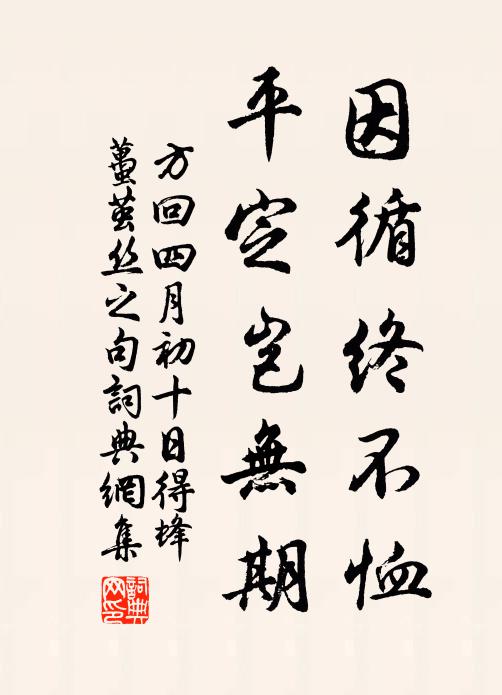 因循終不恤
平定豈無期
方回四月初十日得蜂
蠆茧丝之句詞典網集
詞典網印